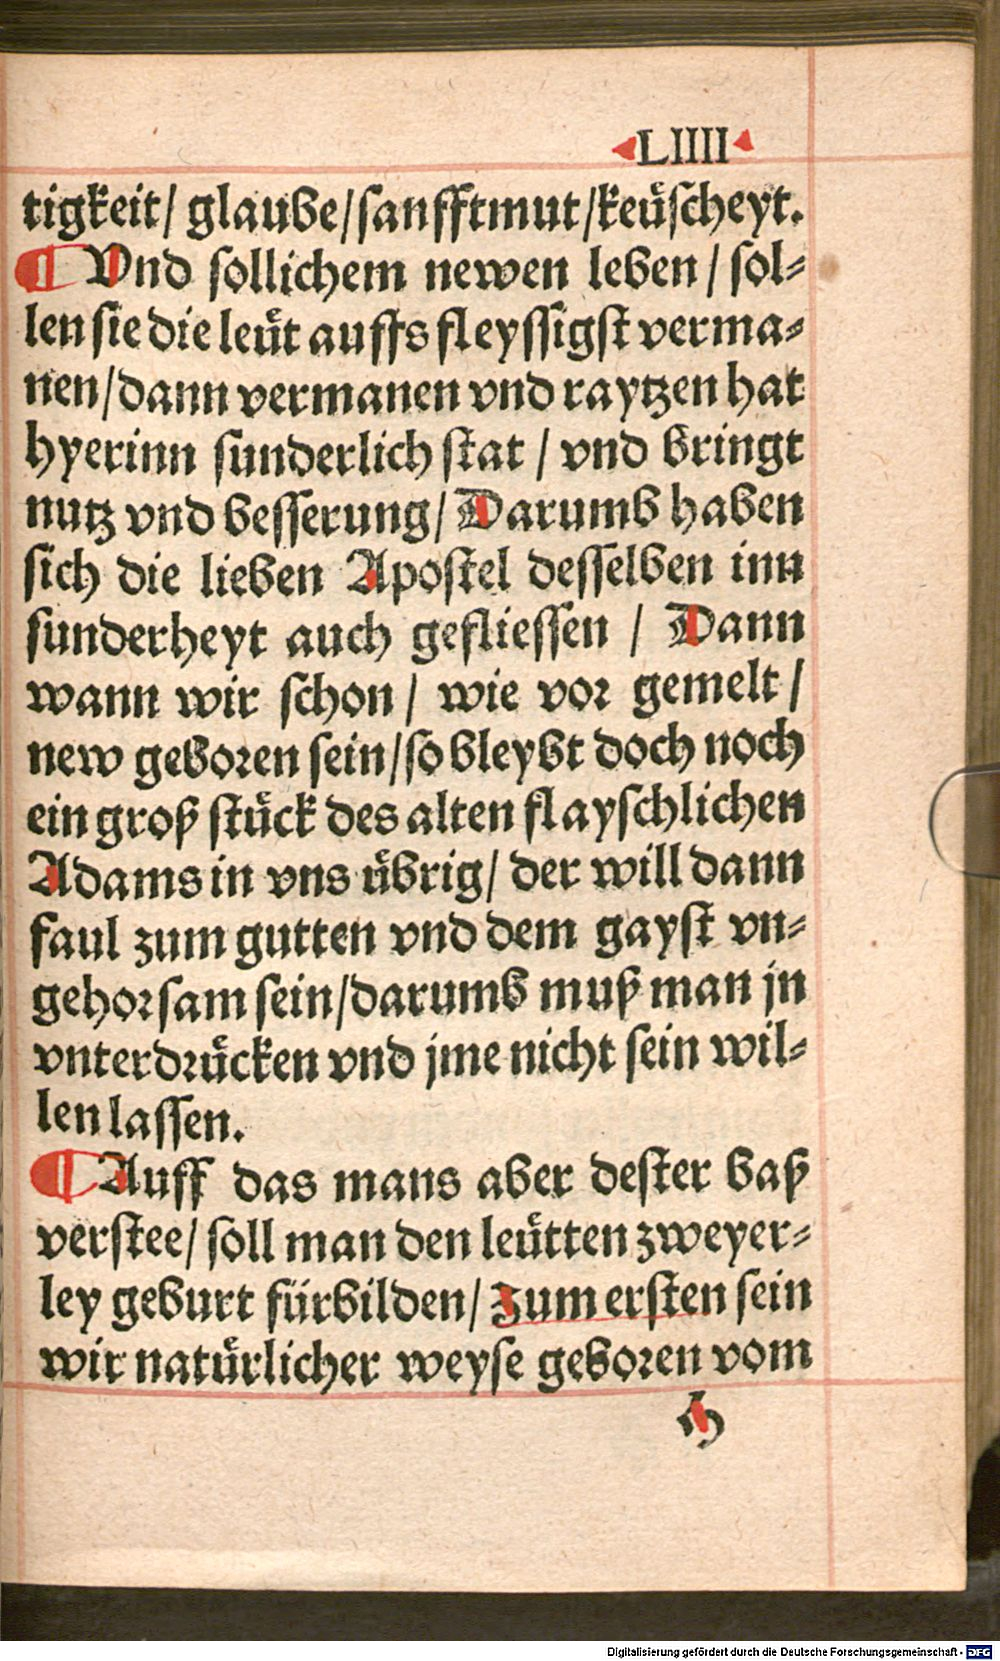 LIIII
tigkeit/ glaube/sanfftmut/keuͤscheyt.
¶ Vnd sollichem newen leben/ sol⸗
len sie die leuͤt auffs fleyssigst verma⸗
nen/dann vermanen vnd raytzen hat
hyerinn sunderlich stat / vnd bringt
nutz vnd besserung/ Darumb haben
sich die lieben Apostel desselben inn
sunderheyt auch gefliessen / Dann
wann wir schon/ wie vor gemelt/
new geboren sein/so bleybt doch noch
ein groß stuͤck des alten flayschlichen
Adams in vns uͤbrig/ der will dann
faul zum gutten vnd dem gayst vn⸗
gehorsam sein/darumb muß man jn
vnterdruͤcken vnd jme nicht sein wil⸗
len lassen.
¶ Auff das mans aber dester baß
verstee/ soll man den leuͤtten zweyer⸗
ley geburt fürbilden/ Zum ersten sein
wir natuͤrlicher weyse geboren vom
H
Digitalisierung gefördert durch die Deutsche Forschungsgemeinschaft - DFG